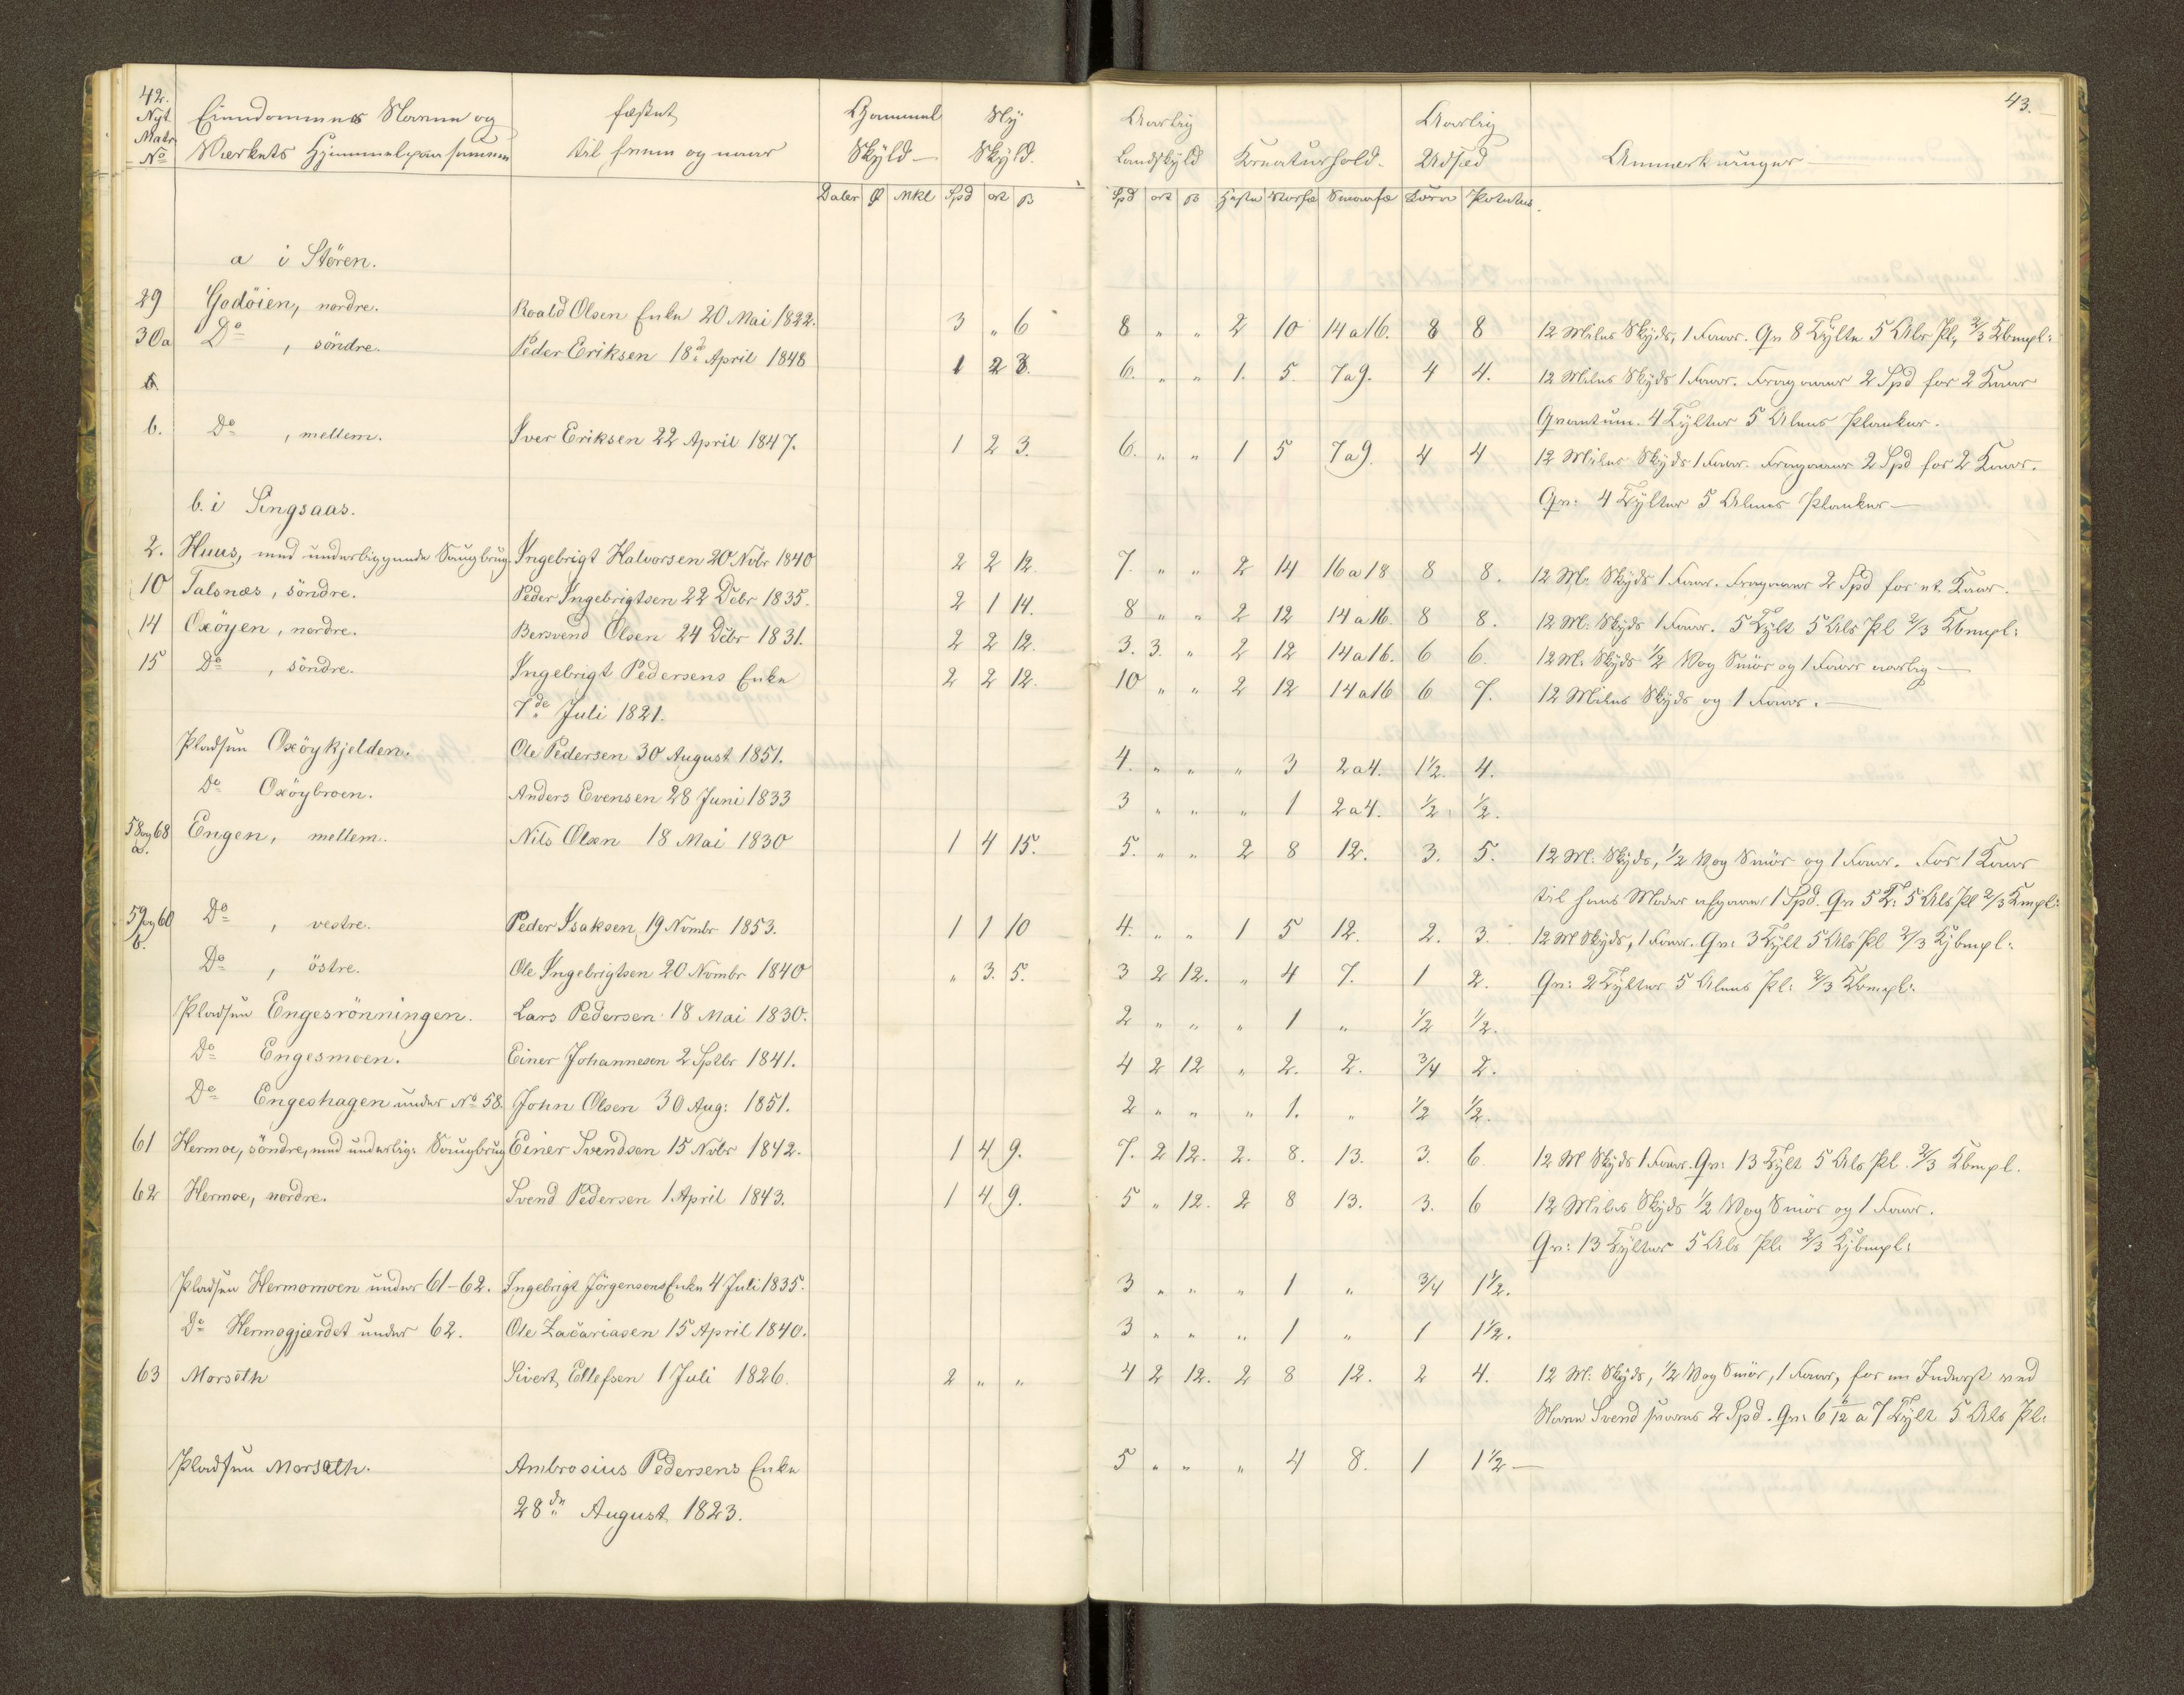 42.
43.
Nyt Matr No
Eiendommens Navn og
Værkets Hjemmel paa samme
fæstet
til hvem og naar
Gammel
Skyld
Ny
Skyld.
Aarlig
Landskyld
Kreaturhold.
Aarlig
Udsæd
Anmerkninger
Daler Mkl Spd ort ß
Spd ort ß Heste Storfæ Smaafæ Korn Poteter.
a i Stören.
29 Godöien, nordre. Roald Olsen Enke 20 Mai 1822. 3 „ 6 8 „ „ 2 10 14 a 16. 8 8 12 Miles Skyds, 1 Faar. Qv 8 Tylte 5 Als Pl, 2/3 Kbmpl:
30a Do , söndre. Peder Eriksen 18de April 1848 1 2 3. 6. „ „ 1. 5. 7 a 9. 4 4. 12 Miles Skyds 1 Faar. Fragaaer 2 Spd for 2 Kaar
Qvantum. 4 Tylter 5 Alens Planker.
b. Do , mellem. Iver Eriksen 22 April 1847. 1 2 3. 6. „ „ 1 5 7 a 9. 4 4 12 Miles Skyds 1 Faar. Fragaaer 2 Spd for 2 Kaar.
Qv: 4 Tylter 5 Alens Planker
b. i Singsaas.
2. Huus, med underliggende Saugbrug Ingebrigt Halvorsen 20 Nvbr 1840 2 2 12. 7. „ „ 2 14 16 a 18 8 8. 12 M. Skyds 1 Faar. Fragaaer 2 Spd for et Kaar.
10 Talsnæs, söndre. Peder Ingebrigtsen 22 Debr 1835. 2 1 14. 8 „ „ 2 12 14 a 16. 8 8. 12 M. Skyds 1 Faar. 5 Tylt 5 Als Pl 2/3 Kbmpl:
14 Oxöyen, nordre. Bersvend Olsen 24 Debr 1831. 2 2 12. 3. 3. „ 2 12 14 a 16. 6 6. 12 M. Skyds 1/2 Vog Smör og 1 Faar aarlig
15 Do , söndre. Ingebrigt Pedersens Enke 2 2 12. 10 „ „ 2 12 14 a 16 6 7. 12 Miles Skyds og 1 Faar.
7de Juli 1821.
Pladsen Oxöykjelden. Ole Pedersen 30 August 1851. 4. „ „ „ 3 2 a 4. 1 1/2. 4.
Do Oxöybroen. Anders Evensen 28 Juni 1833 3 „ „ „ 1 2 a 4. 1/2 1/2.
58 og 68 a. Engen, mellem. Nils Olsen 18 Mai 1830 1 4 15. 5. „ „ 2 8 12. 3. 5. 12 M. Skyds, 1/2 Vog Smör og 1 Faar. For 1 Kaar
til hans Moder afgaaer 1 Spd. Qv 5 T: 5 Als Pl 2/3 Kmpl:
59 og 60 b. Do , vestre. Peder Isaksen 19 Novmbr 1853. 1 1 10 4. „ „ 1 5 12. 2. 3. 12 M Skyds, 1 Faar. Qv: 3 Tylt 5 Als Pl 2/3 Kjbmpl:
Do , östre. Ole Ingebrigtsen 20 Novmbr 1840 „ 3. 5. 3 2 12. „ 4 7. 1 2. Qv: 2 Tylter 5 Alens Pl: 2/3 Kbmpl:
Pladsen Engesrönningen. Lars Pedersen 18 Mai 1830. 2 „ „ „ 1 „ 1/2 1/2.
Do Engesmoen. Einer Johannesen 2 Sptbr 1841. 4 2 12 „ 2. 2. 3/4 2.
Do Engeshagen under No 58. John Olsen 30 Aug: 1851. 2 „ „ „ 1. „ 1/2 1/2.
61 Hermoe, söndre, med underlig: Saugbrug Einer Svendsen 15 Nvbr 1842. 1 4 9. 7. 2 12. 2. 8. 13. 3. 6 12 M Skyds 1 Faar. Qv: 13 Tylt 5 Als Pl. 2/3 Kbmpl.
62 Hermoe, nordre. Svend Pedersen 1 April 1843. 1 4 9. 5 „ 12. 2 8 13. 3. 6 12 Miles Skyds 1/2 Vog Smör og 1 Faar.
Qv: 13 Tylter 5 Als Pl: 2/3 Kjbmpl:
Pladsen Hermomoen under 61-62. Ingebrigt Jörgensens Enke 4 Juli 1835. 3 „ „ „ 1 „ 3/4 1 1/2.
Do Hermogjærdet under 62. Ole Zacariasen 15 April 1840. 3 „ „ „ 1 „ 1 1 1/2.
63 Morseth Sivert Ellefsen 1 Juli 1826. 2 „ „ 4 2 12. 2 8 12. 2 4. 12 M. Skyds, 1/2 Vog Smör, 1 Faar, for en Inderst ved
Navn Svend svares 2 Spd. Qv: 6 6/12 a 7 Tylt 5 Als Pl:
Pladsen Morseth. Ambrosius Pedersens Enke 5 „ „ „ 4 8. 1 1 1/2
28de August 1823.